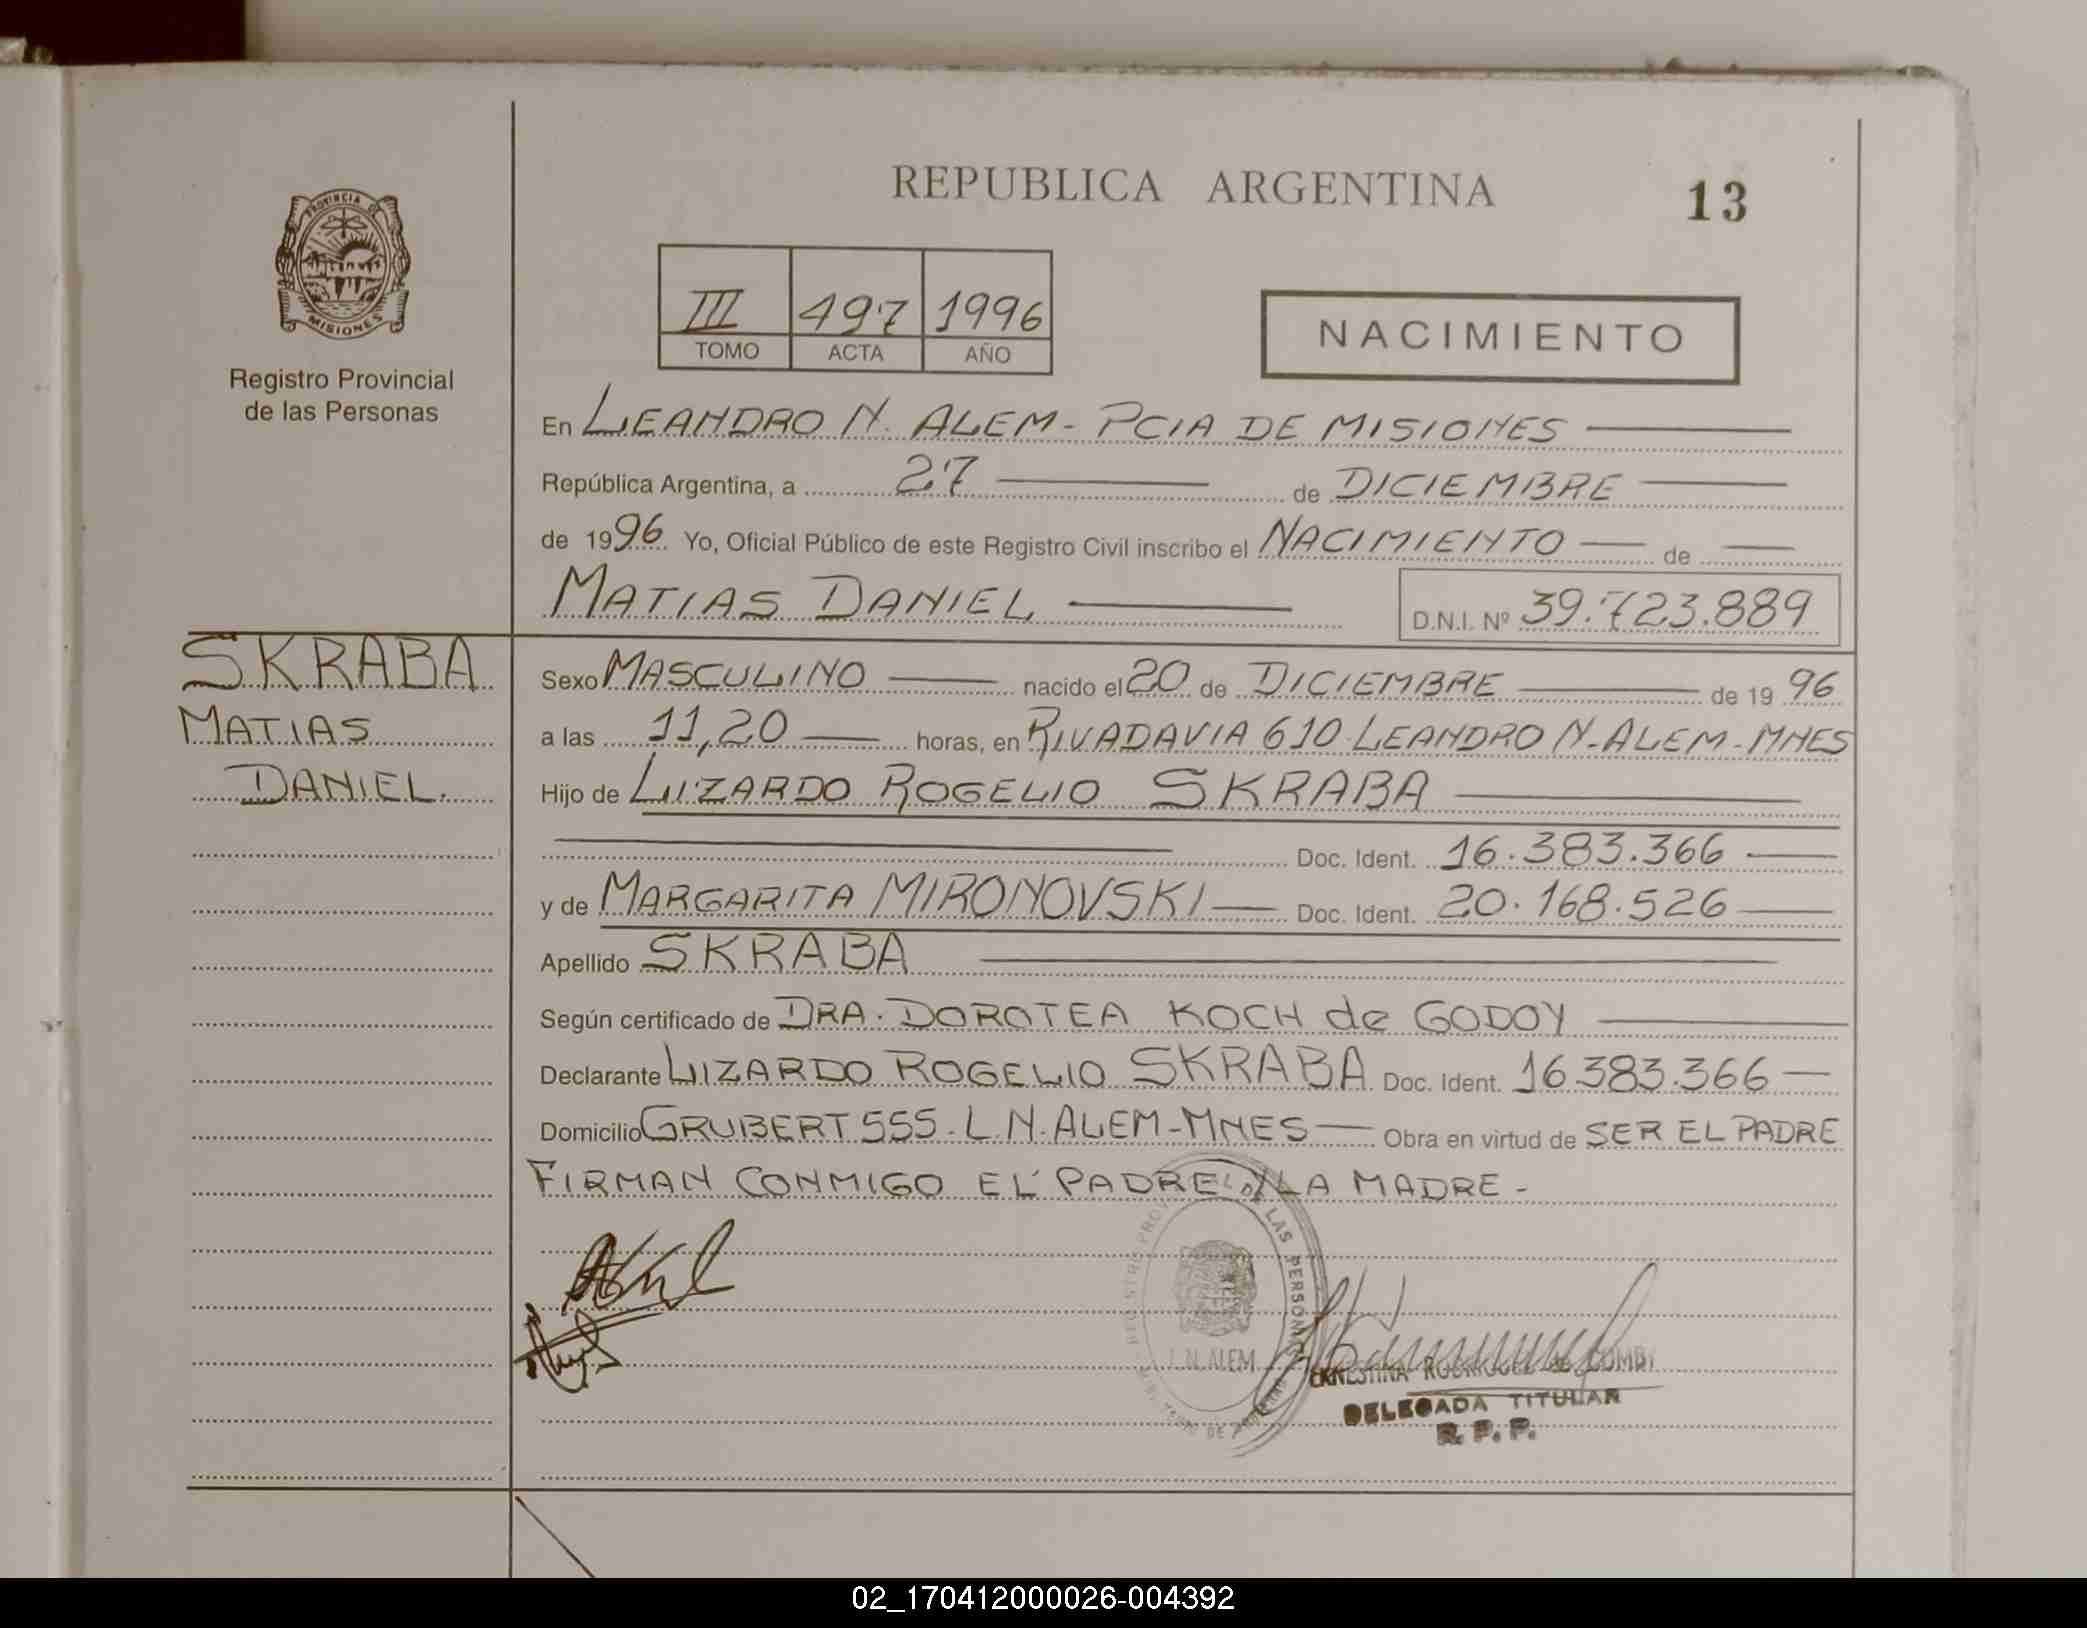 REPUBLICA ARGENTINA
13
PROVINCIA DE
MISIONES
Registro Provincial
de las Personas
III 497 1996
TOMO ACTA AÑO
NACIMIENTO
En LEANDRO N. ALEM - PCIA DE MISIONES
República Argentina, a 27 de DICIEMBRE
de 1996 Yo, Oficial Público de este Registro Civil inscribo el NACIMIENTO de
MATIAS DANIEL D.N.I. Nº 39.723.889
SKRABA
MATIAS
DANIEL.
Sexo MASCULINO nacido el 20 de DICIEMBRE de 19 96
a las 11,20 horas, en RIVADAVIA 610 LEANDRO N. ALEM - MNES
Hijo de LIZARDO ROGELIO SKRABA
Doc. Ident. 16.383.366
y de MARGARITA MIRONOVSKI Doc. Ident. 20.168.526
Apellido SKRABA
Según certificado de DRA. DOROTEA KOCH de GODOY
Declarante LIZARDO ROGELIO SKRABA Doc. Ident. 16383.366
Domicilio GRUBERT 555. L. N. ALEM - MNES Obra en virtud de SER EL PADRE
FIRMAN CONMIGO EL PADRE Y LA MADRE -
DE LAS PERSONAS
L. N. ALEM
ERNESTINA RODRIGUEZ de
DELEGADA TITULAR
R. P. P.
02_170412000026-004392